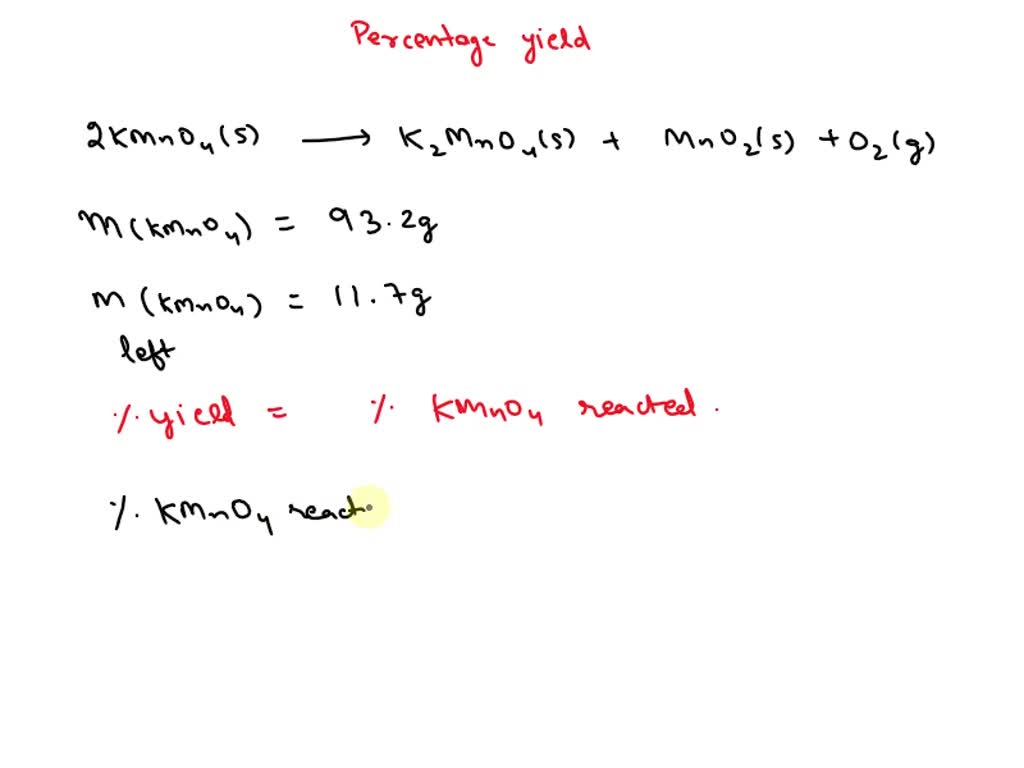 Percentage yield
2KMnO₄(s) ⟶ K₂MnO₄(s) + MnO₂(s) + O₂(g)
m(KMnO₄) = 93.2g
m (KMnO₄) = 11.7g
left
% yield = % KMnO₄ reacted.
% KMnO₄ react